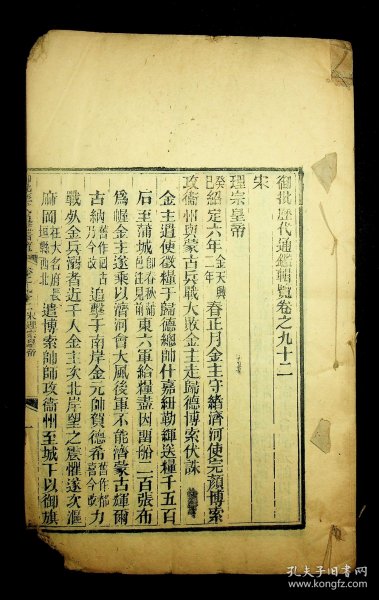 御批歷代通鑑輯覽卷之九十二
宋
理宗皇帝
癸巳紹定六年金天興二年春正月金主守緒濟河使完顏博索
攻衞州與蒙古兵戰大敗金主走歸德博索伏誅
金主遣使徵糧于歸德總帥什嘉紐勒緷送糧千五百
石至蒲城東六軍給糧盡因留船二百張布
爲幄金主遂乘以濟河會大風後軍不能濟蒙古輝爾
古納舊作回古乃今改追擊于南岸金元帥賀德希舊作都喜今改力
戰死金兵溺者近千人金主次北岸望之震懼遂次漚
麻岡在大名府長垣縣西北遣博索帥師攻衞州至城下以御旗
孔夫子旧书网
www.kongfz.com